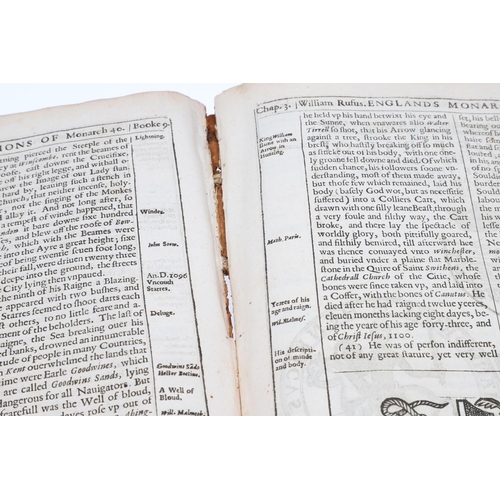 IONS OF Monarch 40. Booke 9.
ning paſſed the Steeple of the
ey at Winſcombe, rent the beames of
roofe, caſt downe the Crucifixe,
e of his right legge, and withall o-
rew the Image of our Lady ſtan-
hard by: leauing ſuch a ſtench in
Church, that neither incenſe, holy-
nor the ſinging of the Monkes
allay it. And not long after, ſo
a tempeſt of winde happened, that
ondon it bare downe fixe hundred
s, and blew off the roofe of Bow-
, which with the Beames were
into the Ayre a great height; ſixe
of being twentie ſeuen foot long,
their fall, were driuen twenty three
deepe into the ground, the ſtreets
City lying then vnpaued.
the ninth of his Raigne a Blazing-
e appeared with two buſhes, and
Starres ſeemed to ſhoot darts each
ſt others, to no little feare and a-
ment of the beholders. The laſt of
aigne, the Sea breaking ouer his
ed banks, drowned an innumerable
itude of people in many Countries,
n Kent ouerwhelmed the lands that
time were Earle Goodwines, which
are called Goodwins Sands, lying
dangerous for all Nauigators. But
fearefull was the Well of bloud,
dayes roſe vp out of
Lightning.
Windes.
John Stow.
An. D. 1096
Deluge.
Goodwins Sads
Hector Boetius.
A Well of
Bloud.
Will. Malmesb.
Chap. 3. William Rufus. ENGLANDS MONAR
he held vp his hand betwixt his eye
and the Sunne, when vnawares Walter
Tirrell ſo ſhot, that his Arrow glancing
againſt a tree, ſtrooke the King in his
breſt, who haſtily breaking off ſo much
as ſtucke out of his body, with one one-
ly groane fell downe and died. Of which
ſudden chance, his followers ſoone vn-
derſtanding, moſt of them made away,
but thoſe few which remained, laid his
body (baſely God wot, but as neceſſitie
ſuffered) into a Colliers Cart, which
drawne with one ſilly leane Beaſt, through
a very foule and filthy way, the Cart
broke, and there lay the ſpectacle of
worldly glory, both pittifully goared,
and filthily bemired, till afterward hee
was thence conuayed vnto Wincheſter,
and buried vnder a plaine flat Marble-
ſtone in the Quire of Saint Swithens, the
Cathedrall Church of the Citie, whoſe
bones were ſince taken vp, and laid into
a Coffer, with the bones of Canutus. He
died after he had raigned twelue yeeres,
eleuen moneths lacking eight dayes, be-
ing the yeare of his age forty-three, and
of Chriſt Ieſus, 1100.
(41) He was of perſon indifferent,
not of any great ſtature, yet very well
King William
ſlaine with an
Arrow in
Hunting.
Math. Paris.
Yeeres of his
age and raign.
Wil. Malmeſ.
His deſcripti-
on of minde
and body.